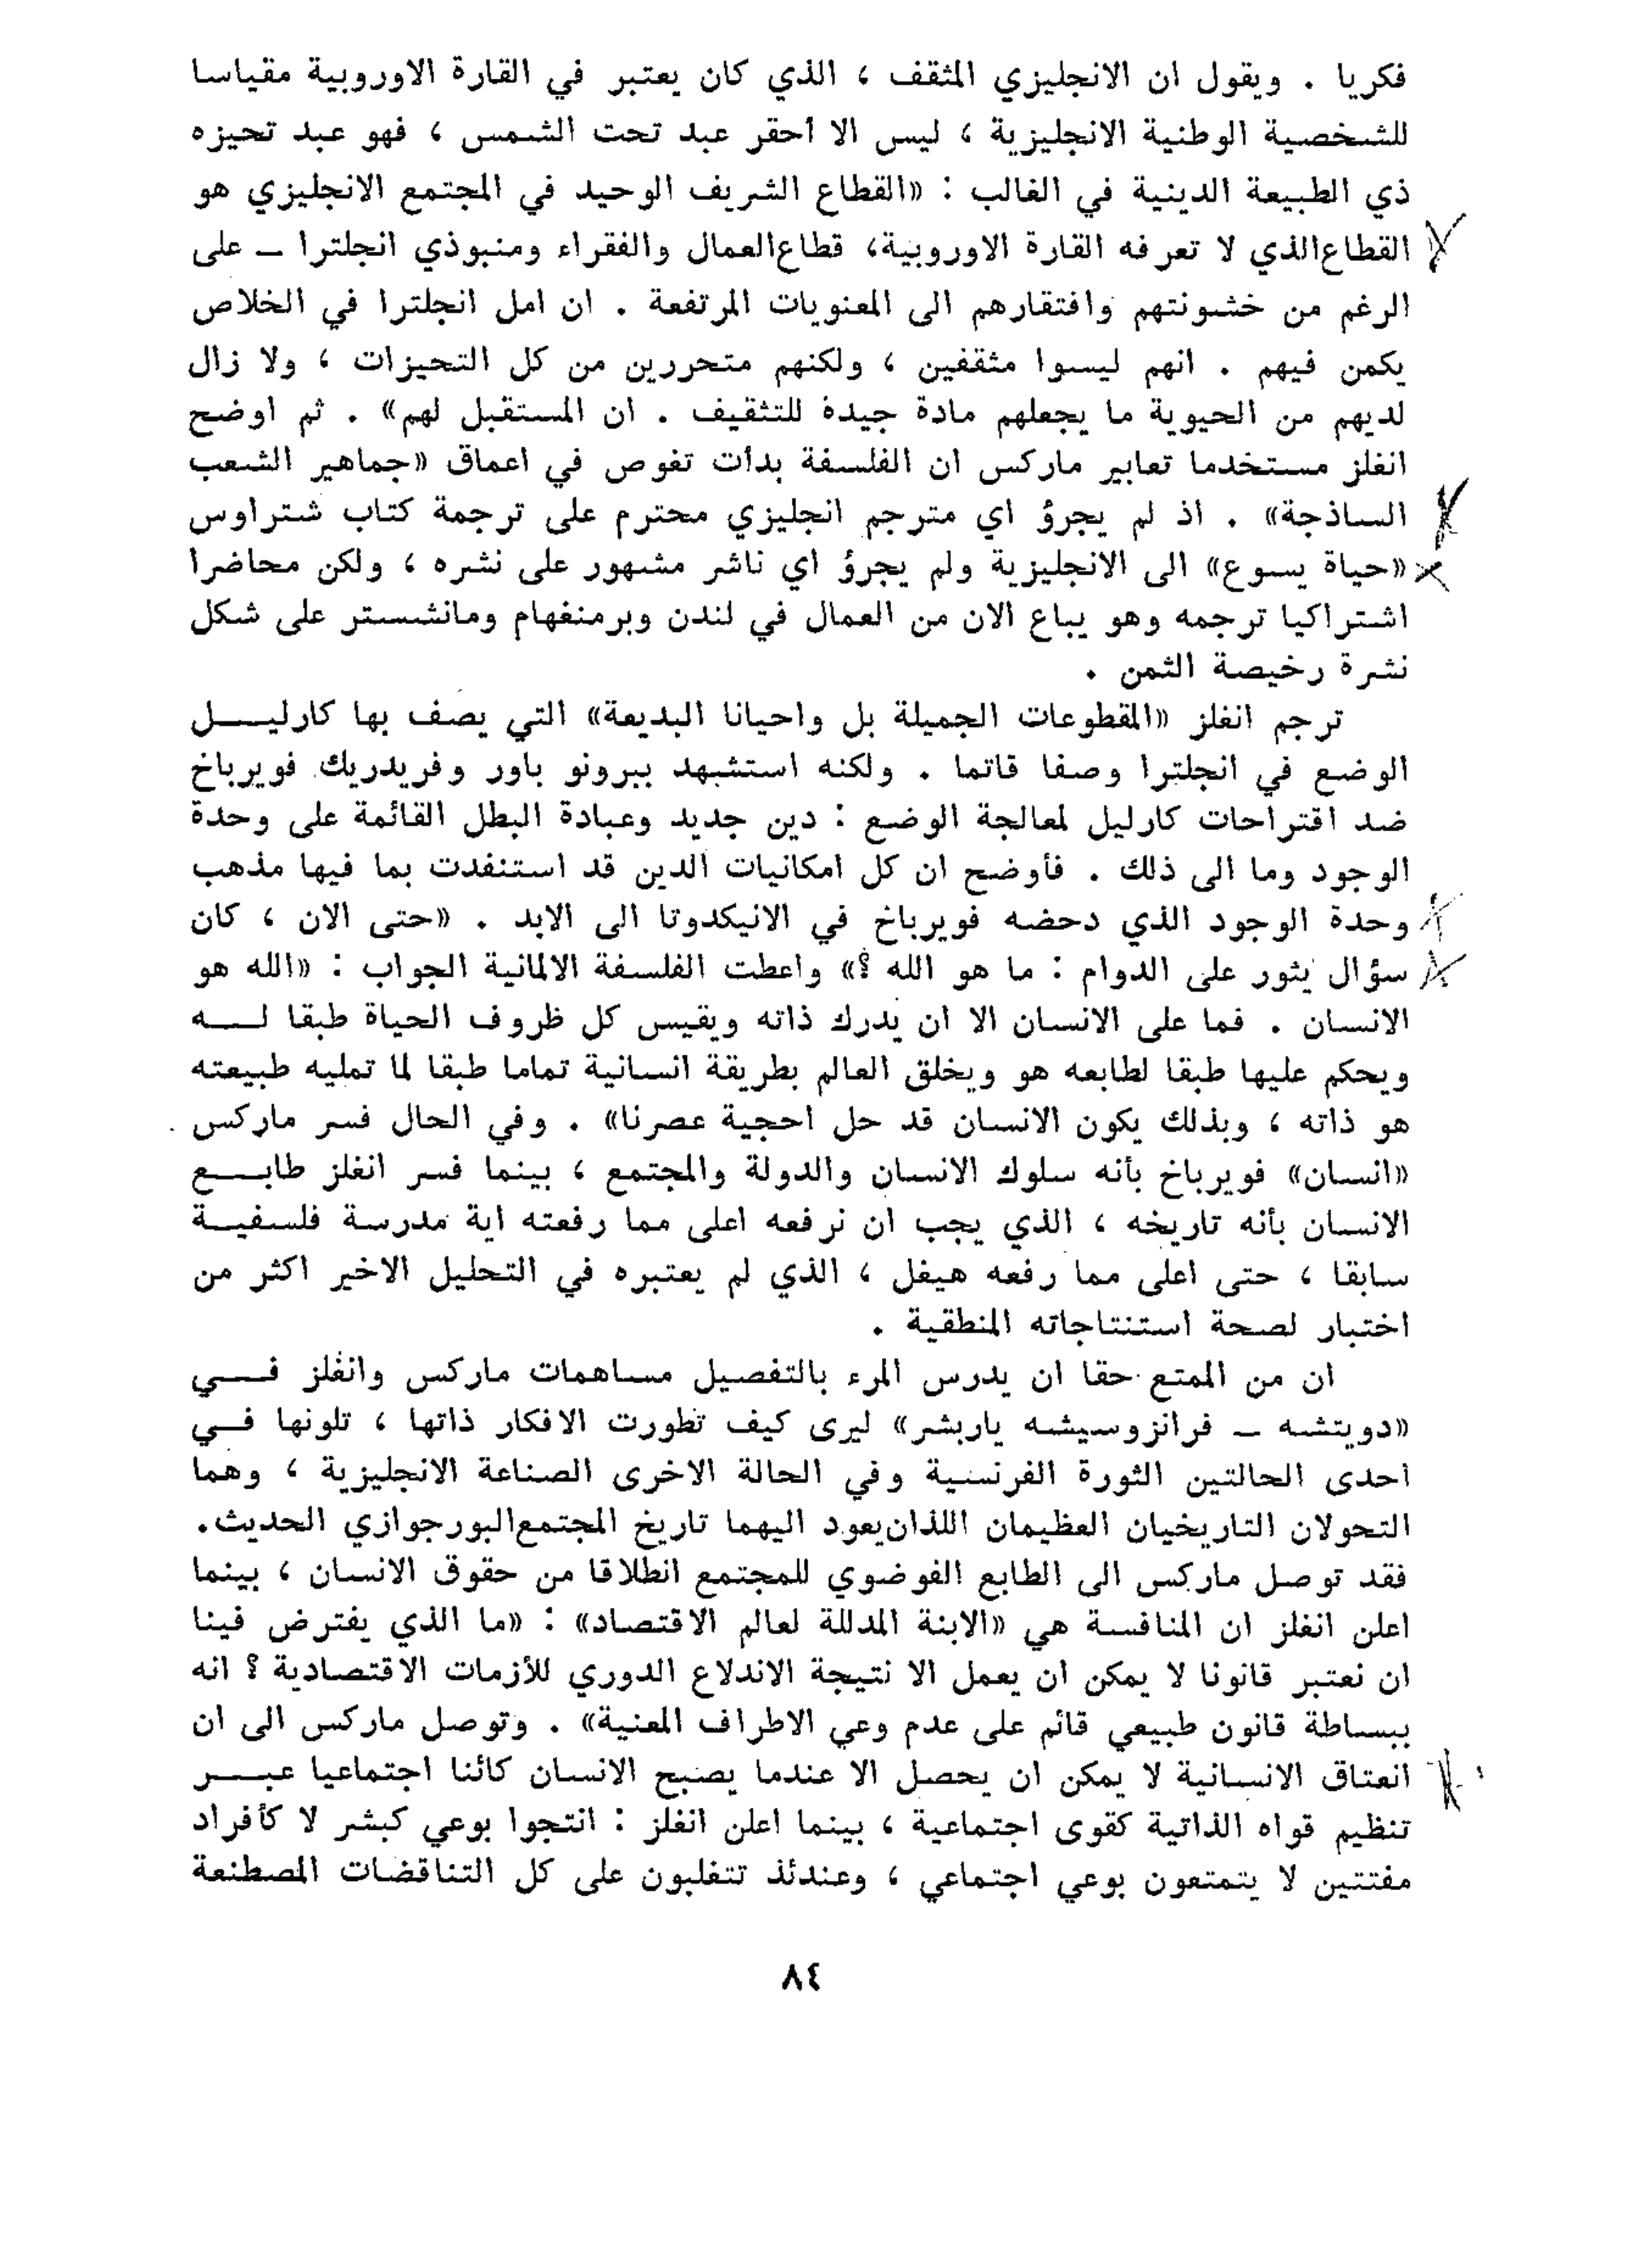 فكريا . ويقول ان الانجليزي المثقف ، الذي كان يعتبر في القارة الاوروبية مقياسا
للشخصية الوطنية الانجليزية ، ليس الا أحقر عبد تحت الشمس ، فهو عبد تحيزه
ذي الطبيعة الدينية في الغالب : «القطاع الشريف الوحيد في المجتمع الانجليزي هو
القطاع الذي لا تعرفه القارة الاوروبية، قطاع العمال والفقراء ومنبوذي انجلترا – على
الرغم من خشونتهم وافتقارهم الى المعنويات المرتفعة . ان امل انجلترا في الخلاص
يكمن فيهم . انهم ليسوا مثقفين ، ولكنهم متحررين من كل التحيزات ، ولا زال
لديهم من الحيوية ما يجعلهم مادة جيدة للتثقيف . ان المستقبل لهم» . ثم اوضح
انغلز مستخدما تعابير ماركس ان الفلسفة بدأت تغوص في اعماق «جماهير الشعب
الساذجة» . اذ لم يجرؤ اي مترجم انجليزي محترم على ترجمة كتاب شتراوس
«حياة يسوع» الى الانجليزية ولم يجرؤ اي ناشر مشهور على نشره ، ولكن محاضرا
اشتراكيا ترجمه وهو يباع الان من العمال في لندن وبرمنغهام ومانشستر على شكل
نشرة رخيصة الثمن .
ترجم انغلز «المقطوعات الجميلة بل واحيانا البديعة» التي يصف بها كارليــل
الوضع في انجلترا وصفا قاتما . ولكنه استشهد ببرونو باور وفريدريك فويرباخ
ضد اقتراحات كارليل لمعالجة الوضع : دين جديد وعبادة البطل القائمة على وحدة
الوجود وما الى ذلك . فأوضح ان كل امكانيات الدين قد استنفدت بما فيها مذهب
وحدة الوجود الذي دحضه فويرباخ في الانيكدوتا الى الابد . «حتى الان ، كان
سؤال يثور على الدوام : ما هو الله ؟» واعطت الفلسفة الالمانية الجواب : «الله هو
الانسان . فما على الانسان الا ان يدرك ذاته ويقيس كل ظروف الحياة طبقا لــه
ويحكم عليها طبقا لطابعه هو ويخلق العالم بطريقة انسانية تماما طبقا لما تمليه طبيعته
هو ذاته ، وبذلك يكون الانسان قد حل احجية عصرنا» . وفي الحال فسر ماركس
«انسان» فويرباخ بأنه سلوك الانسان والدولة والمجتمع ، بينما فسر انغلز طابــع
الانسان بأنه تاريخه ، الذي يجب ان نرفعه اعلى مما رفعته اية مدرسة فلسفيــة
سابقا ، حتى اعلى مما رفعه هيغل ، الذي لم يعتبره في التحليل الاخير اكثر من
اختبار لصحة استنتاجاته المنطقية .
ان من الممتع حقا ان يدرس المرء بالتفصيل مساهمات ماركس وانغلز فــي
«دويتشه – فرانزوسيشه ياربشر» ليرى كيف تطورت الافكار ذاتها ، تلونها فــي
احدى الحالتين الثورة الفرنسية وفي الحالة الاخرى الصناعة الانجليزية ، وهما
التحولان التاريخيان العظيمان اللذان يعود اليهما تاريخ المجتمع البورجوازي الحديث.
فقد توصل ماركس الى الطابع الفوضوي للمجتمع انطلاقا من حقوق الانسان ، بينما
اعلن انغلز ان المنافسة هي «الابنة المدللة لعالم الاقتصاد» : «ما الذي يفترض فينا
ان نعتبر قانونا لا يمكن ان يعمل الا نتيجة الاندلاع الدوري للأزمات الاقتصادية ؟ انه
ببساطة قانون طبيعي قائم على عدم وعي الاطراف المعنية» . وتوصل ماركس الى ان
انعتاق الانسانية لا يمكن ان يحصل الا عندما يصبح الانسان كائنا اجتماعيا عبــر
تنظيم قواه الذاتية كقوى اجتماعية ، بينما اعلن انغلز : انتجوا بوعي كبشر لا كأفراد
مفتتين لا يتمتعون بوعي اجتماعي ، وعندئذ تتغلبون على كل التناقضات المصطنعة
٨٤